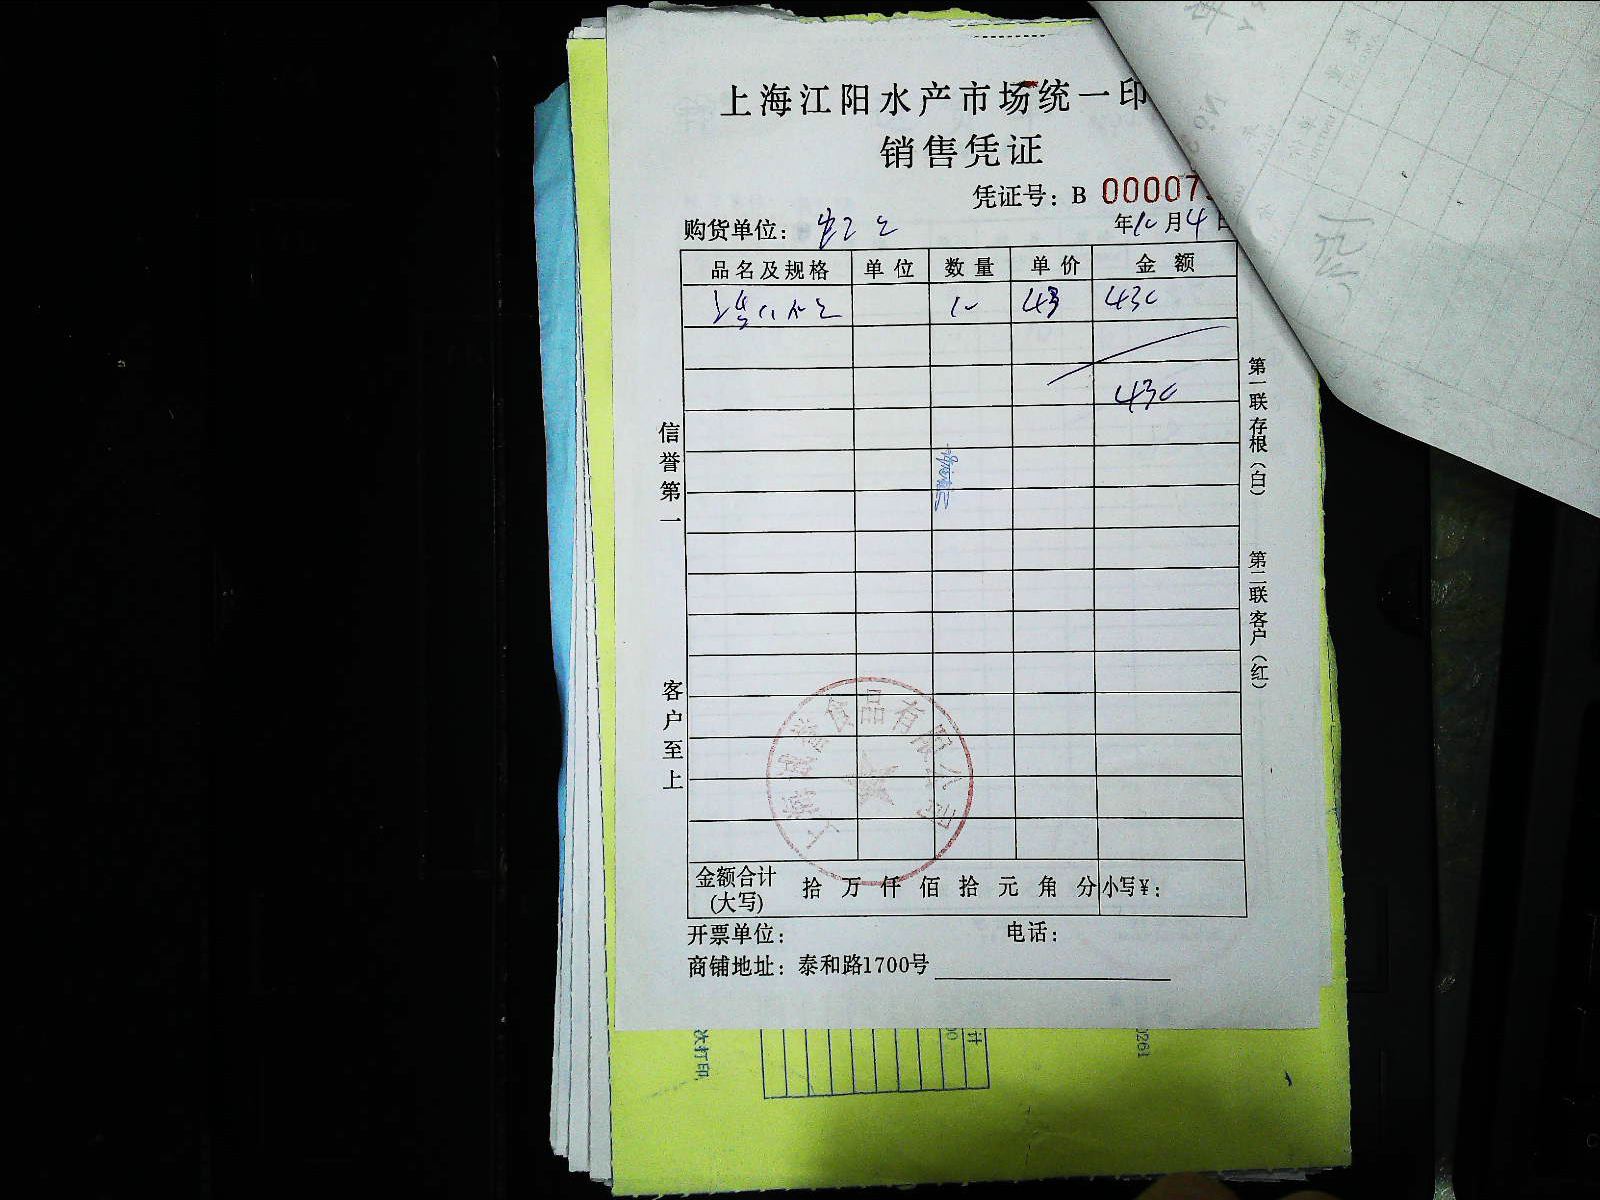 上海江阳水产市场统一印
销售凭证
凭证号：B 00007
购货单位： 年10月4日
品名及规格 单位 数量 单价 金额
10 43 430
430
信誉第一
客户至上
第一联存根（白）
第二联客户（红）
食品有限公司
金额合计(大写) 拾 万 仟 佰 拾 元 角 分 小写¥：
开票单位： 电话：
商铺地址：泰和路1700号
次打印
计
00
0261